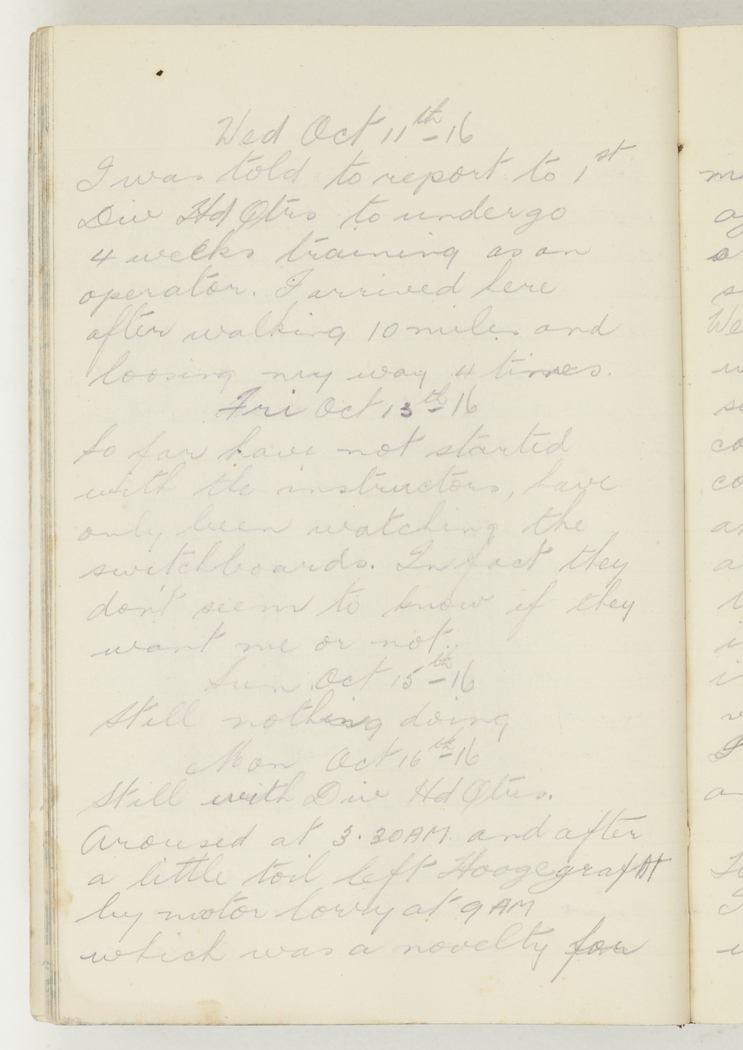 Wed Oct 11th-16
I was told to report to 1st
Div Hd Qtrs to undergo
4 weeks training as an
operator. I arrived here
after walking 10 miles and
loosing my way 4 times.
Fri Oct 13th-16
So far have not started
with the instructors, have
only been watching the
switchboards. In fact they
don't seem to know if they
want me or not.
Sun Oct 15th-16
Still nothing doing
Mon Oct 16th-16
Still with Div Hd Qtrs.
Aroused at 3.30AM and after
a little toil left Hoogegraft
by motor lorry at 9AM
which was a novelty for